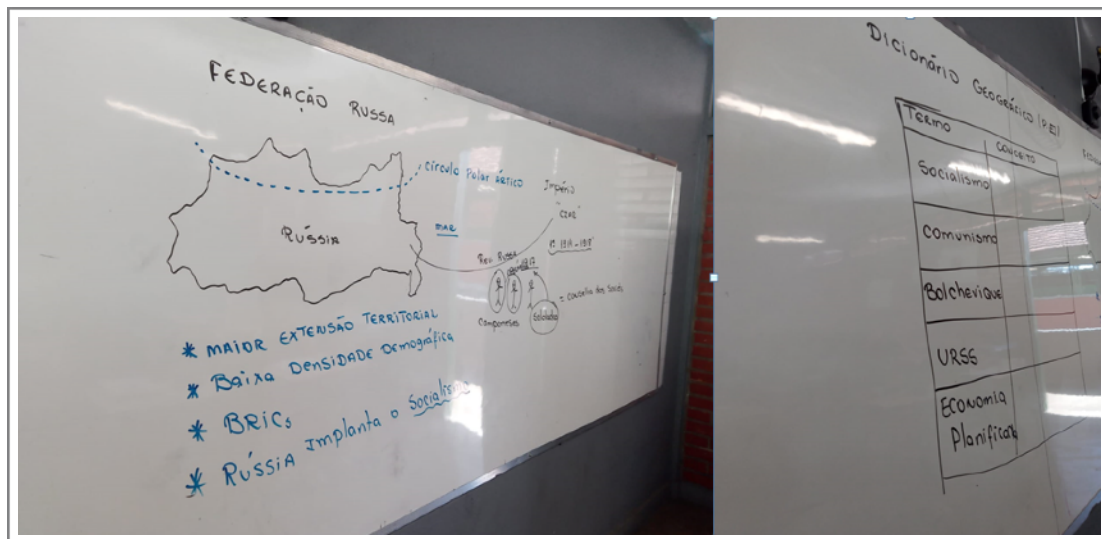 FEDERAÇÃO RUSSA
Círculo Polar Ártico
Império
"CZAR"
RÚSSIA
MAR
Rev. Russa
1917
Camponeses
Soldados
* MAIOR EXTENSÃO TERRITORIAL
* Baixa DENSIDADE DEmográfica
* BRICs
* RÚSSIA Implanta o Socialismo
Dicionário GEOGRÁFICO
TERMO
CONCEITO
Socialismo
Comunismo
Bolchevique
URSS
ECONOMIA
Planificada